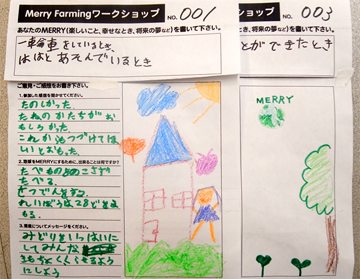 Merry Farmingワークショップ NO. 001
あなたのMERRY(楽しいこと、幸せなとき、将来の夢など)を書いて下さい。
一輪車をしているとき、
ははとあそんでいるとき
ご意見・ご感想をお聞かせ下さい。
1. 参加した感想を聞かせてください。
たのしかった
たねのかたちがお
もしろかった。
これからもつづけてほし
いとおもった。
たべる。
せつでんをする
れいぼうは28どをま
もる。
3. 環境についてメッセージをください。
みどりをいっぱいに
してみんな
きもちよくくらせるように
しよう
NO. 003
(楽しいこと、幸せなとき、将来の夢など)を書いて下さい。
とができたとき
MERRY